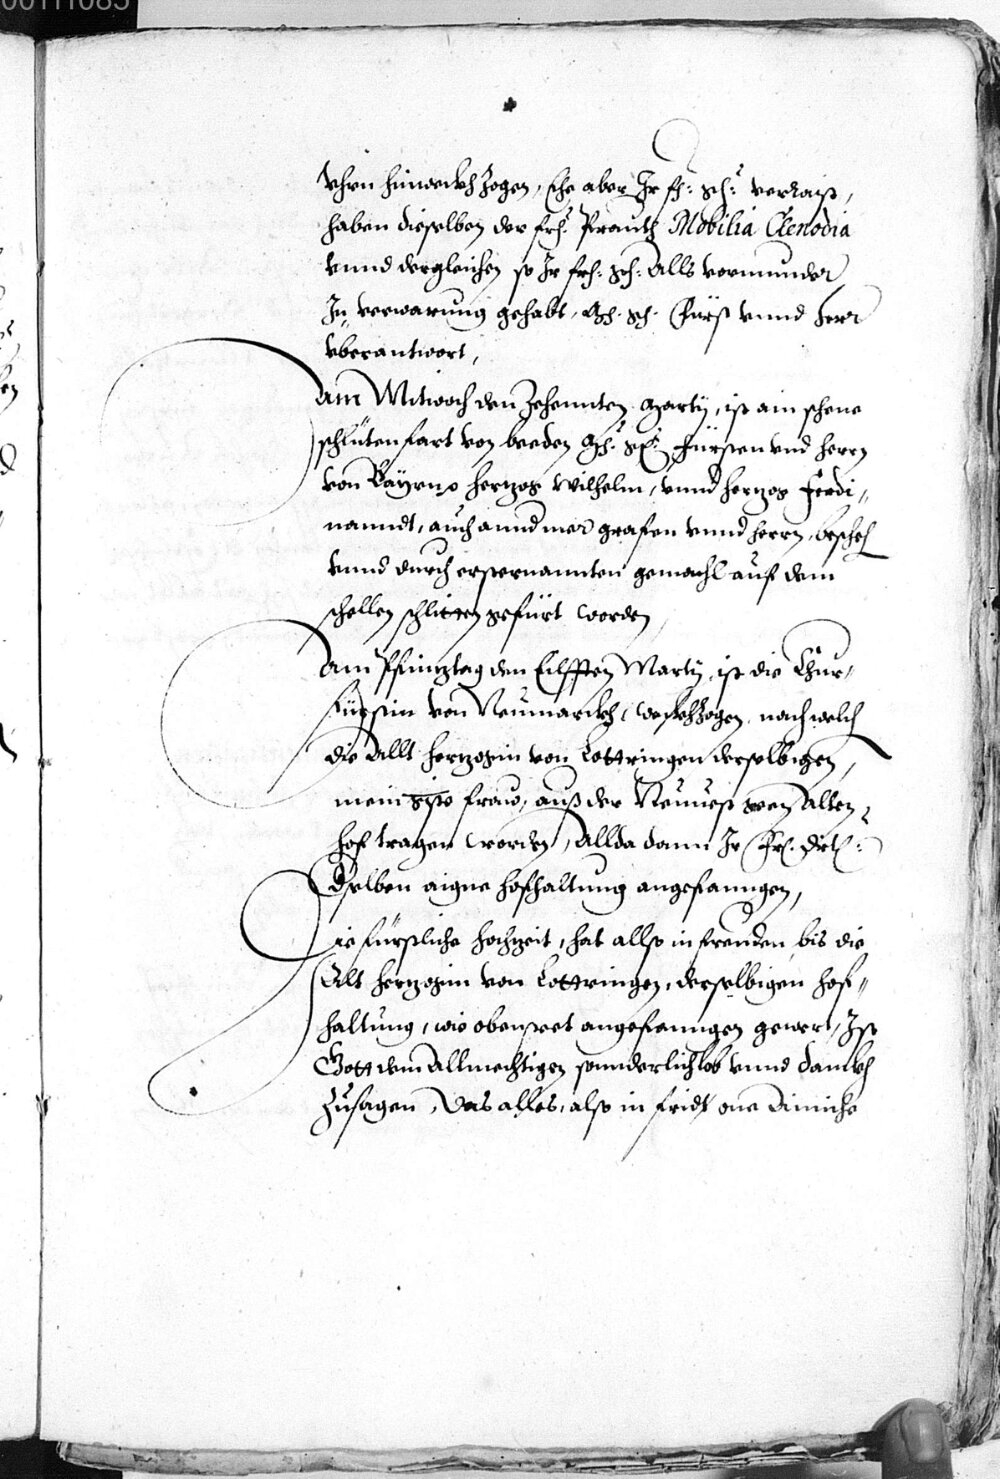 00111085
vhrn hinweckh zogen, Ehe aber Ir fh: gh: verraist,
haben dieselben der frh: Prauth Mobilia Clenodia
vnnd dergleichen so Ir frh: gh: Alls vormunder
In verwarung gehabt, gh. gh. Fürst vnnd herr
vberantwort,
Am Mitwoch den Zehennten Marty, ist ain schene
schlitenfart von beeden gh: gh: Fürsten vnd herrn
von Bayrn herzog Wilhelm, vnnd herzog Ferdi-
nanndt, auch annd mer grafen vnnd herrn, bescheh
vnnd durch ersternannten gemachl auf dem
schellen schlitten gefürt worden,
Am Pfinztag den Eilfften Marty, ist die Chur-
fürstin von Neumarckh, weckhzogen, nach welch
die Allt herzogin von Lottringen derselbigen,
mein gste fraw, auß der Neuvest gen Alten
hof tragen worden, Allda dann Ir Frh. Drth:
dselben aigne hofhaltung angefanngen,
Die fürstliche hochzeit, hat allso in freuden bis die
Alt herzogin von Lottringen, derselbigen hof-
haltung, wie obensteet angefanngen gewert, Ist
Gott dem Allmechtigen sonnderlich lob vnnd danckh
zusagen, Das alles, also in fridt one Ainiche